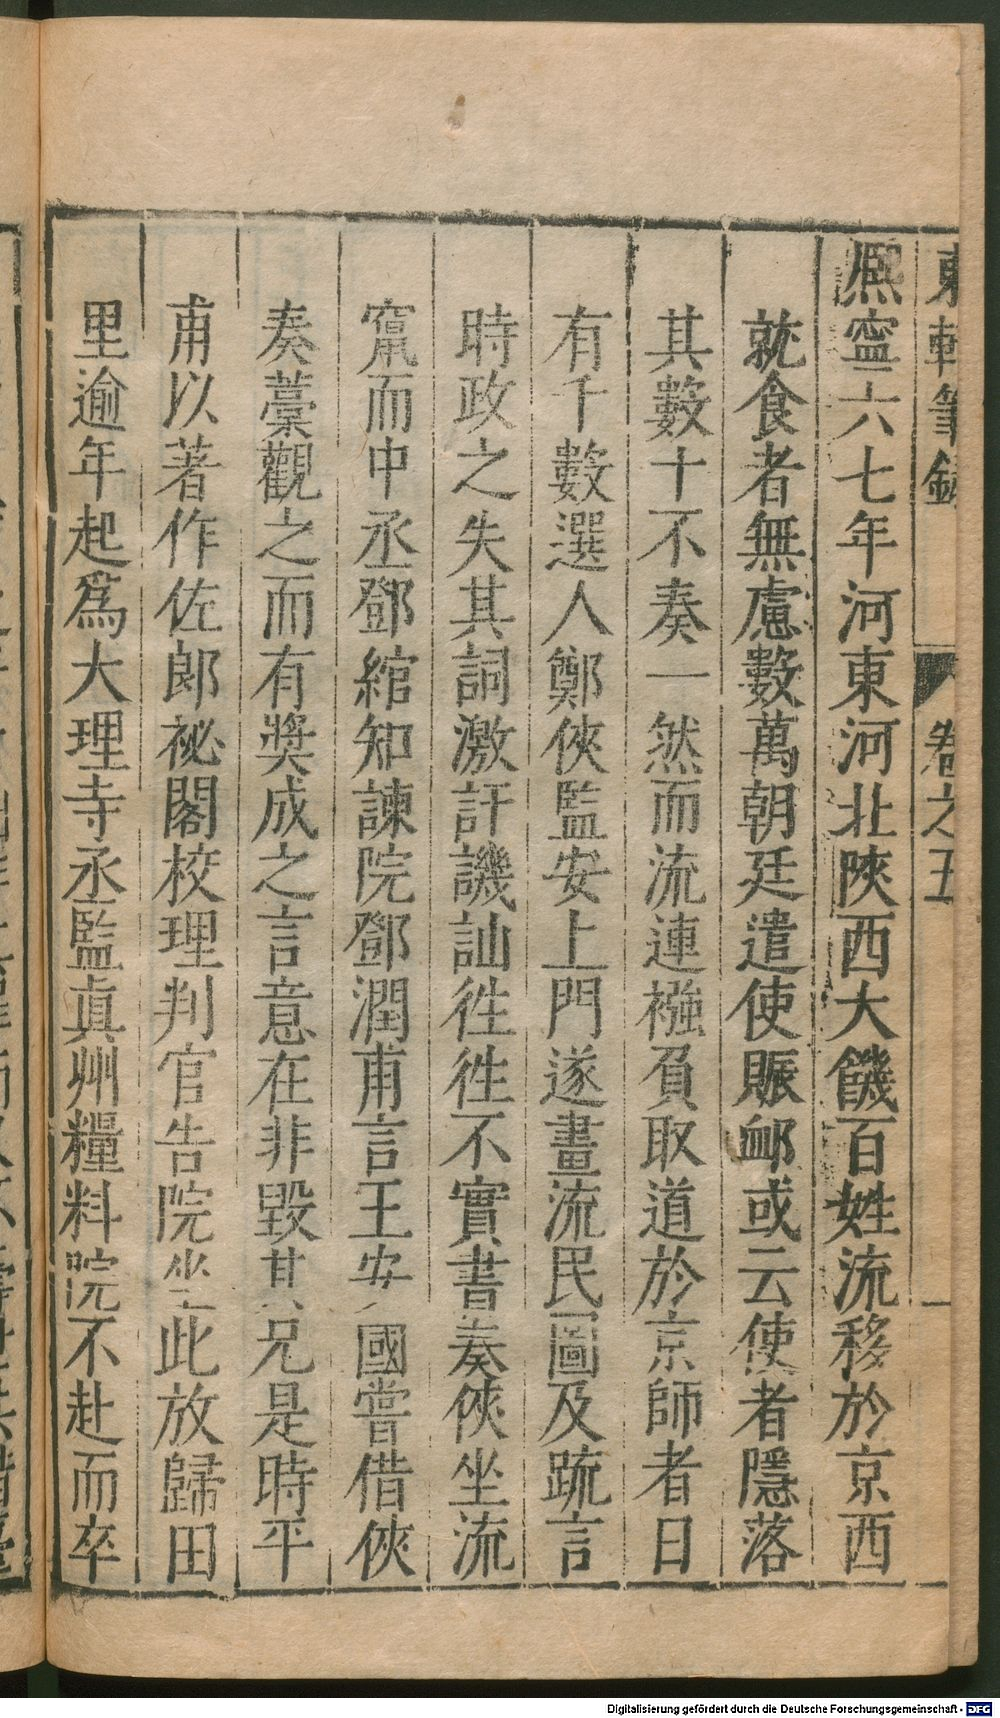 東軒筆錄 卷之五 一
熈寧六七年河東河北陝西大饑百姓流移於京西
就食者無慮數萬朝廷遣使賑䘏或云使者隱落
其數十不奏一然而流連襁負取道於京師者日
有千數選人鄭俠監安上門遂畫流民圖及䟽言
時政之失其詞激訐譏訕徃徃不實書奏俠坐流
竄而中丞鄧綰知諫院鄧潤甫言王安國嘗借俠
奏藁觀之而有奬成之言意在非毀其兄是時平
甫以著作佐郎祕閣校理判官告院坐此放歸田
里逾年起爲大理寺丞監眞州糧料院不赴而卒
Digitalisierung gefördert durch die Deutsche Forschungsgemeinschaft - DFG